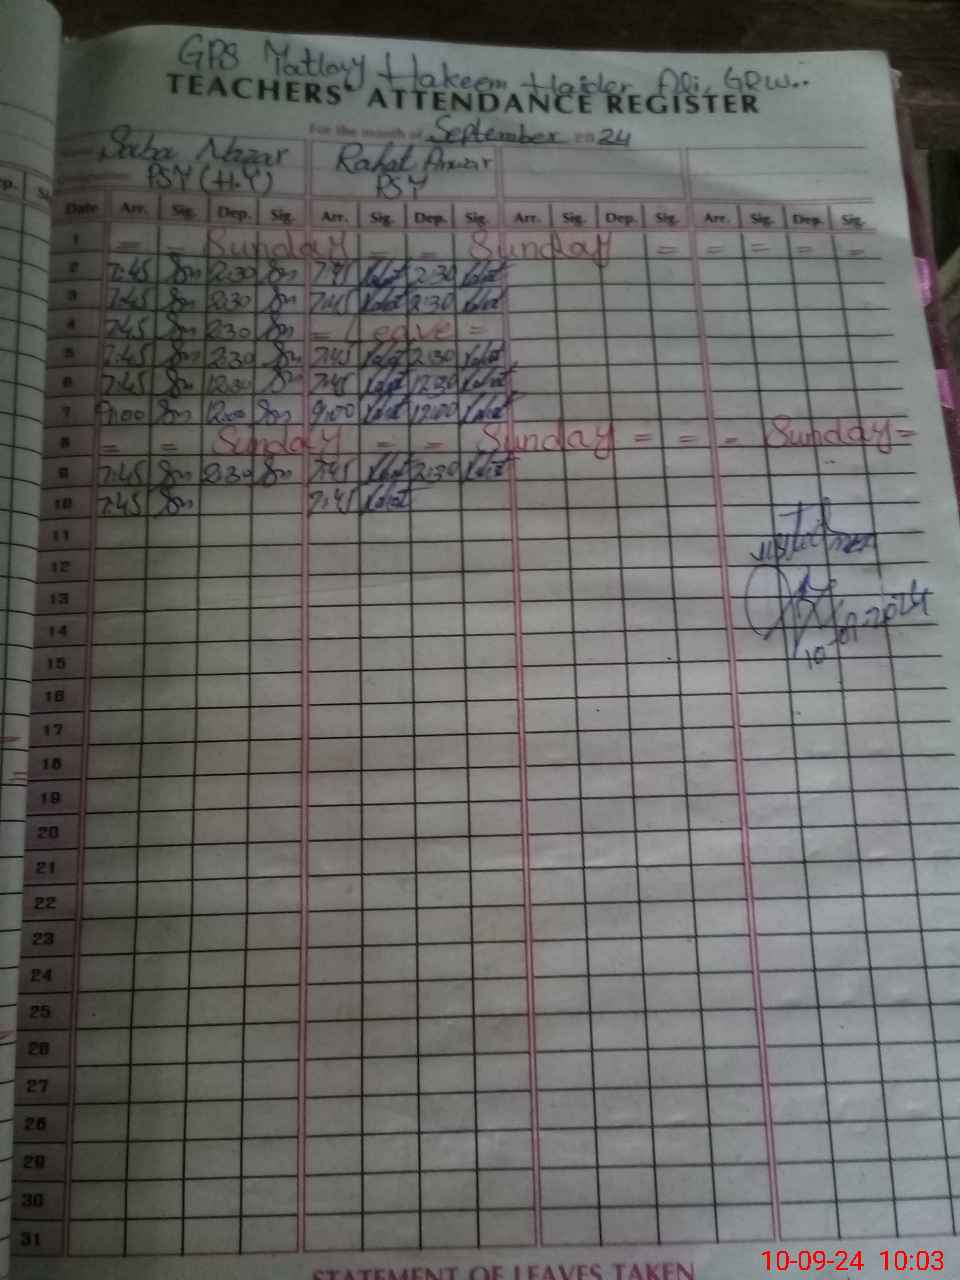 GPS Matlay Hakeem Haider Ali, GRW..
TEACHERS' ATTENDANCE REGISTER
For the month of September 20 24
Saba Nazar Rahat
PSY (H.Y) PSY
Date Arr. Sig. Dep. Sig. Arr. Sig. Dep. Sig. Arr. Sig. Dep. Sig. Arr. Sig. Dep. Sig.
1 = - Sunday - - Sunday = = = = =
2 7:45 2:30 7:45 2:30
3 7:45 2:30 7:45 2:30
4 7:45 2:30 = Leave =
5 7:45 2:30 7:45 2:30
6 7:45 12:30 7:45 12:30
7 9:00 12:00 9:00 12:00
8 = - Sunday - - Sunday = = - Sunday =
9 7:45 2:30 7:45 2:30
10 7:45 7:45
11
12
13
14
10-09-2024
15
16
17
18
19
20
21
22
23
24
25
26
27
28
29
30
31
STATEMENT OF LEAVES TAKEN
10-09-24 10:03